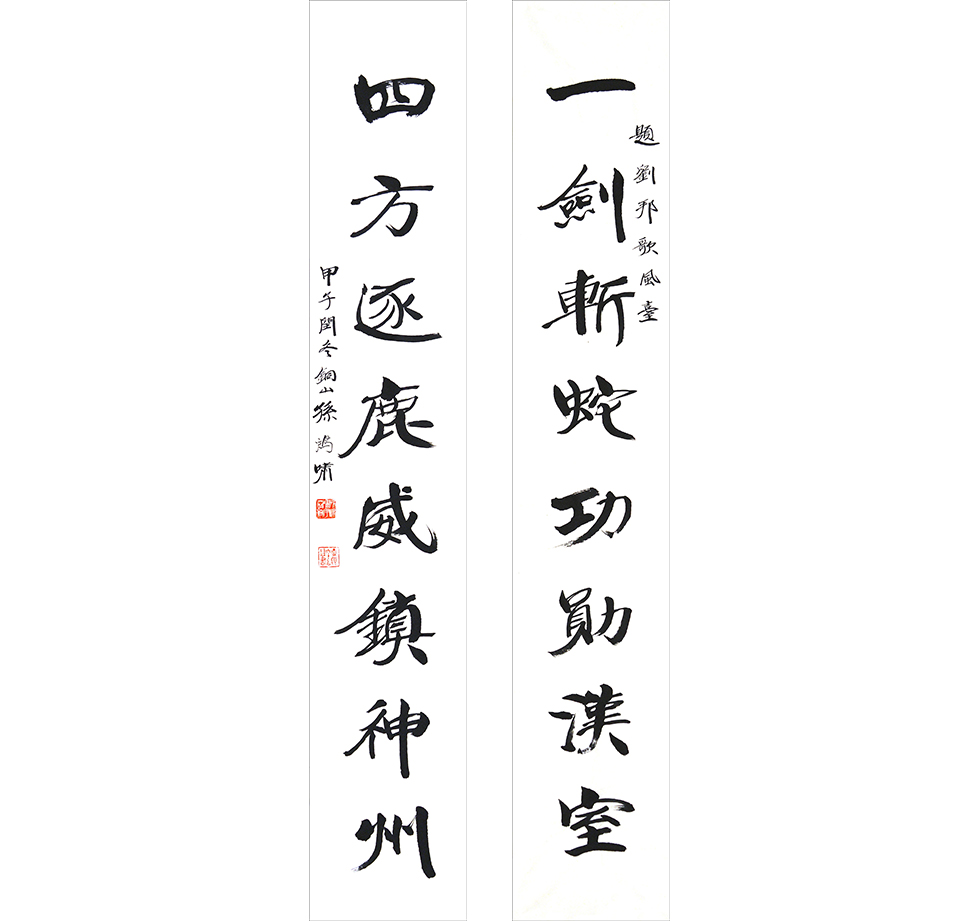 題劉邦歌風臺
一劍斬蛇功勛漢室
四方逐鹿威鎮神州
甲午閏冬銅山孫鴻嘯